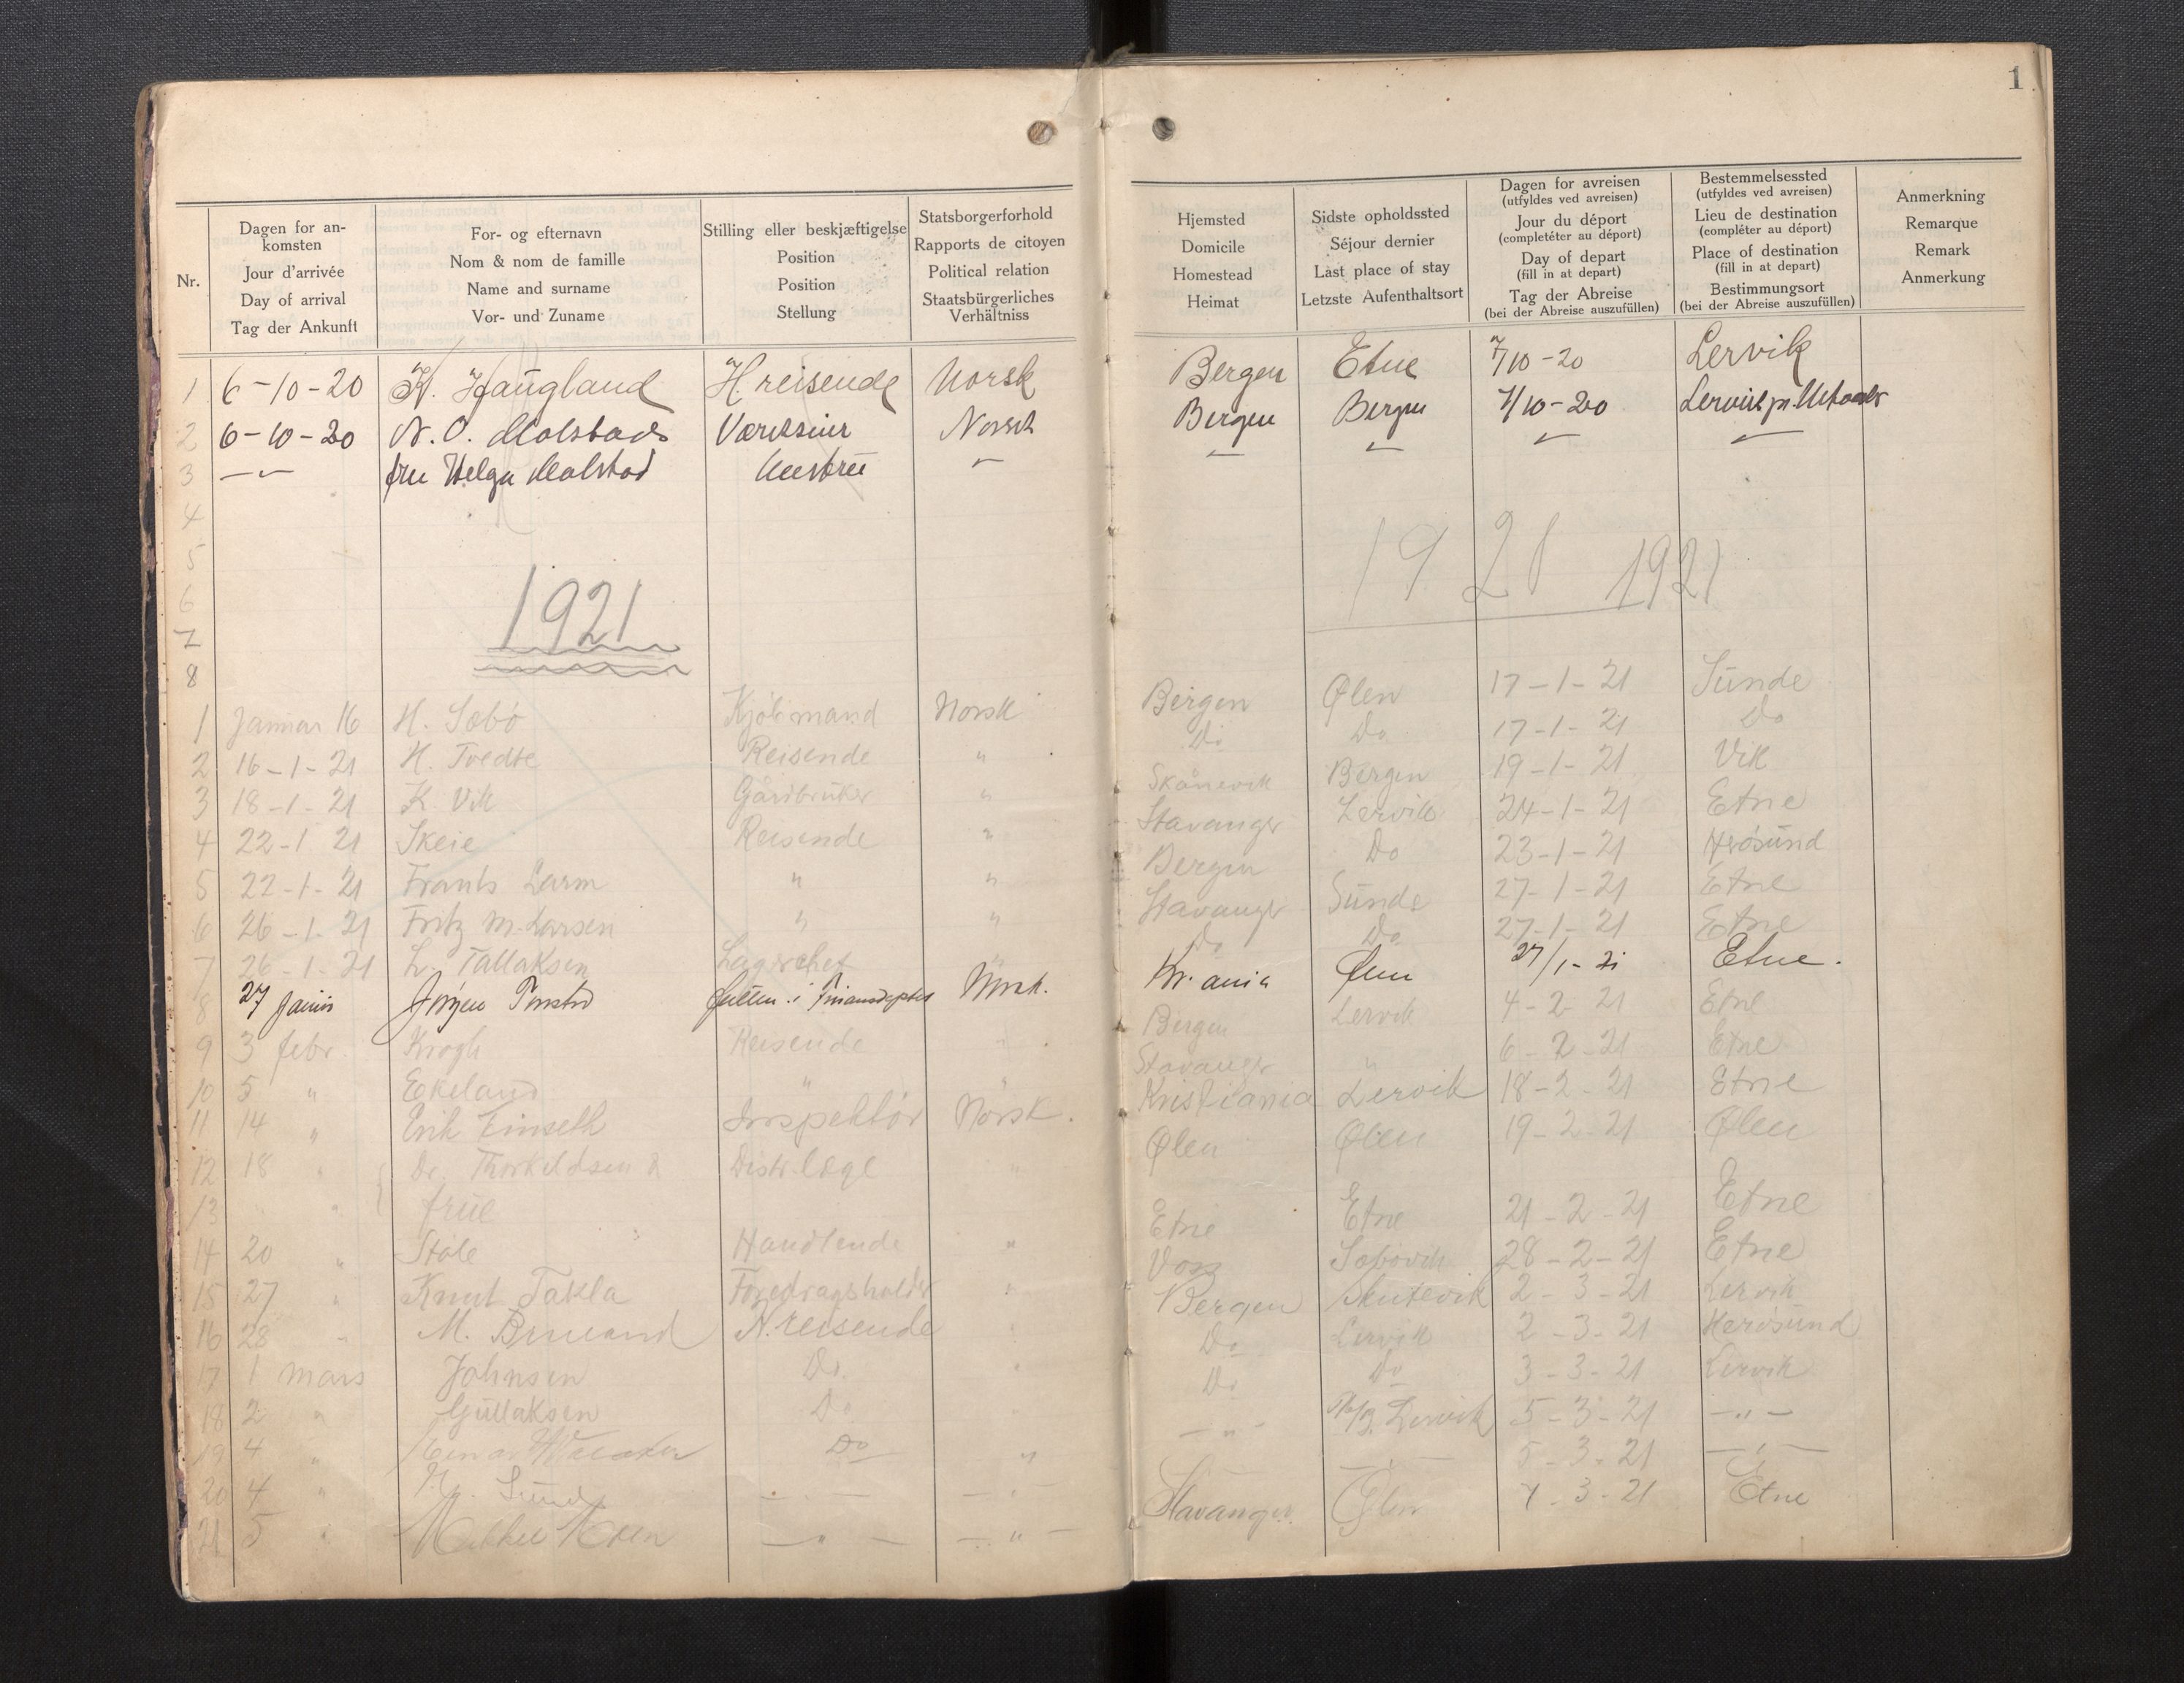 1
Nr.
Dagen for an-
komsten
Jour d'arrivée
Day of arrival
Tag der Ankunft
For- og efternavn
Nom & nom de famille
Name and surname
Vor- und Zuname
Stilling eller beskjæftigelse
Position
Position
Stellung
Statsborgerforhold
Rapports de citoyen
Political relation
Staatsbürgerliches
Verhältniss
Hjemsted
Domicile
Homestead
Heimat
Sidste opholdssted
Séjour dernier
Last place of stay
Letzste Aufenthaltsort
Dagen for avreisen
(utfyldes ved avreisen)
Jour du départ
(completéter au départ)
Day of depart
(fill in at depart)
Tag der Abreise
(bei der Abreise auszufüllen)
Bestemmelsessted
(utfyldes ved avreisen)
Lieu de destination
(compléter au départ)
Place of destination
(fill in at depart)
Bestimmungsort
(bei der Abreise auszufüllen)
Anmerkning
Remarque
Remark
Anmerkung
1 6-10-20 K. Haugland H.reisende Norsk Bergen Etne 7/10-20 Lervik
2 6-10-20 N. O. Molstad Norsk Bergen Bergen 7/10-20
3 —"— fru Helga Molstad " " " " "
4
5
6
7
8
1921
1921 1921
1 Januar 16 H. Sæbö Kjöbmand Norsk Bergen Ølen 17-1-21 Sunde
2 16-1-21 H. Tvedte Reisende " Do Do 17-1-21 Do
3 18-1-21 K. Vik Gårdbruker " Skånevik Bergen 19-1-21 Vik
4 22-1 21 Skeie Reisende " Stavanger Lervik 24-1-21 Etne
5 22-1-21 Frants Larm " " Bergen Do 23-1-21 Herösund
6 26-1-21 Fritz M. Larsen " " Stavanger Sunde 27-1-21 Etne
7 26-1-21 L. Tallaksen Lagerchef " Do Do 27-1-21 Etne
8 27 Januar Jörgen i Norsk. Kr.ania Ølen 27/1-21 Etne.
9 3 febr. Krogh Reisende " Bergen Lervik 4-2-21 Etne
10 5 " Ekeland " " Stavanger " 6-2-21 Etne
11 14 " Erik Finseth Inspektör Norsk. Kristiania Lervik 18-2-21 Etne
12 18 " Dr. Thorkeldsen & Distr.læge " Ølen Ølen 19-2-21 Ølen
13 " " frue
14 20 " Ståle Handlende " Etne Etne 21-2-21 Etne
15 27 " Knut Takla Foredragsholder " Voss Sæbövik 28-2-21 Etne
16 28 " M. H.reisende " Bergen 2-3-21 Lervik
17 1 mars Johnsen Do. " Do Lervik 2-3-21 Herösund
18 2 " Gullaksen Do " Do Do 3-3-21 Lervik
19 4 " Do " —"— Lervik 5-3-21 —"—
20 4 " Sund —"— —"— —"— 5-3-21 —"—
21 5 " —"— —"— Stavanger. Ølen 7-3-21 Etne